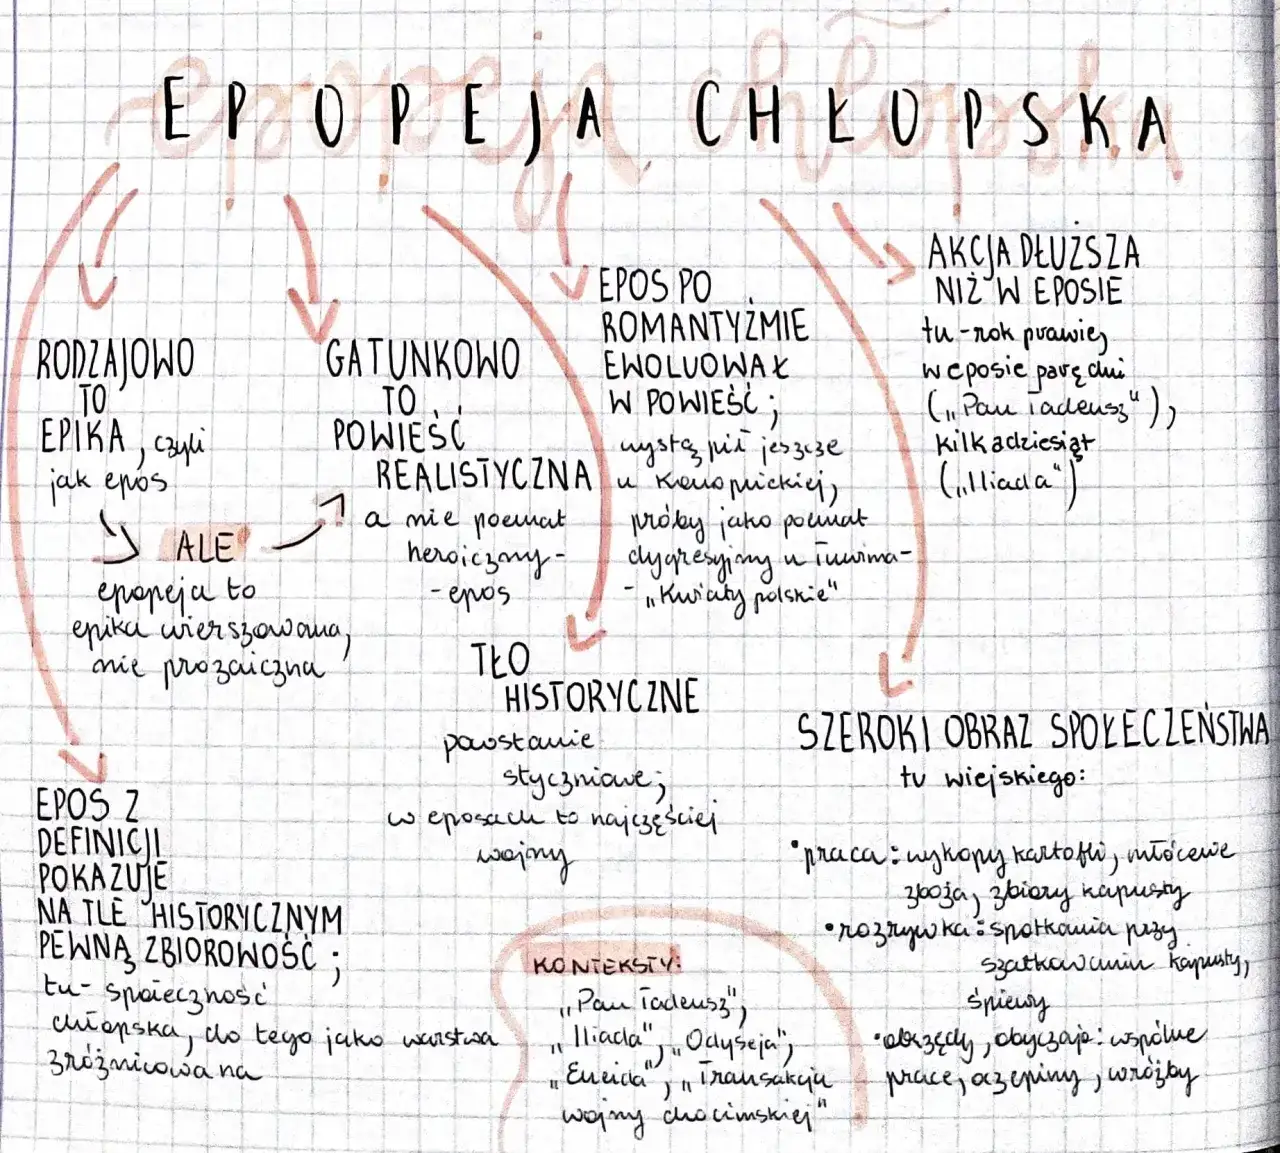 epopeja chłopska
EPOPEJA CHŁOPSKA
RODZAJOWO
TO
EPIKA, czyli
jak epos
ALE
epopeja to
epika wierszowana,
nie prozaiczna
GATUNKOWO
TO
POWIEŚĆ
REALISTYCZNA
a nie poemat
heroiczny-
-epos
EPOS PO
ROMANTYŹMIE
EWOLUOWAŁ
W POWIEŚĆ;
wystąpił jeszcze
u Konopnickiej,
próby jako poemat
dygresyjny u Tuwima-
-„Kwiaty polskie"
AKCJA DŁUŻSZA
NIŻ W EPOSIE
tu-rok prawie,
w eposie parę dni
(„Pan Tadeusz"),
kilkadziesiąt
(„Iliada")
TŁO
HISTORYCZNE
powstanie
styczniowe;
w eposach to najczęściej
wojny
SZEROKI OBRAZ SPOŁECZEŃSTWA
tu wiejskiego:
•praca: wykopy kartofli, młócenie
zboża, zbiory kapusty
•rozrywka: spotkania przy
szatkowaniu kapusty,
śpiewy
•obrzędy, obyczaje: wspólne
prace, oczepiny, wróżby
EPOS Z
DEFINICJI
POKAZUJE
NA TLE HISTORYCZNYM
PEWNĄ ZBIOROWOŚĆ;
tu- społeczność
chłopska, do tego jako warstwa
zróżnicowana
KONTEKSTY:
„Pan Tadeusz",
„Iliada", „Odyseja",
„Eneida", „Transakcja
wojny chocimskiej"